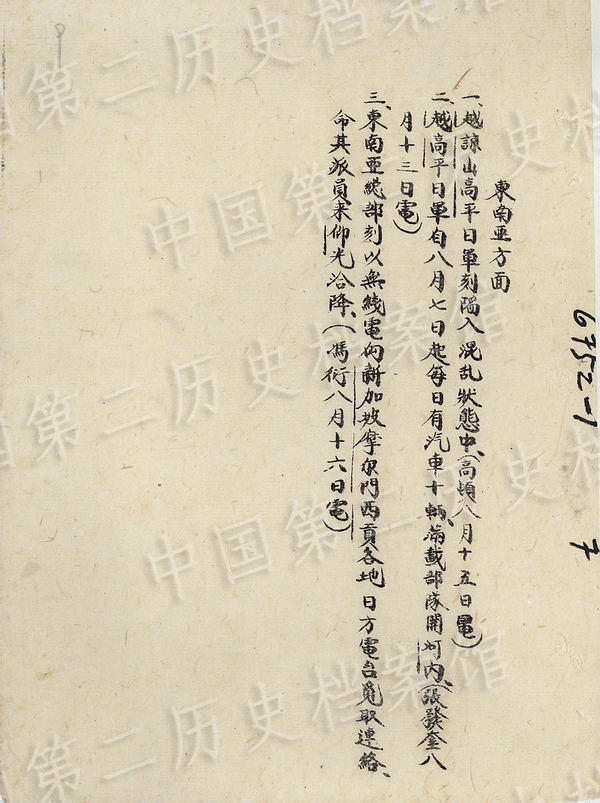 東南亜方面
一、越諒山高平日軍刻陷入混乱狀態中、(高頓八月十五日電)
二、越高平日軍自八月七日起每日有汽車十輛、滿載部隊開河內、(張發奎八
月十三日電)
三、東南亜總部刻以無綫電向新加坡摩尔門西貢各地日方電台覓取連絡、
命其派員来仰光洽降、(馮衍八月十六日電)
6752-1
7
中国第二历史档案馆